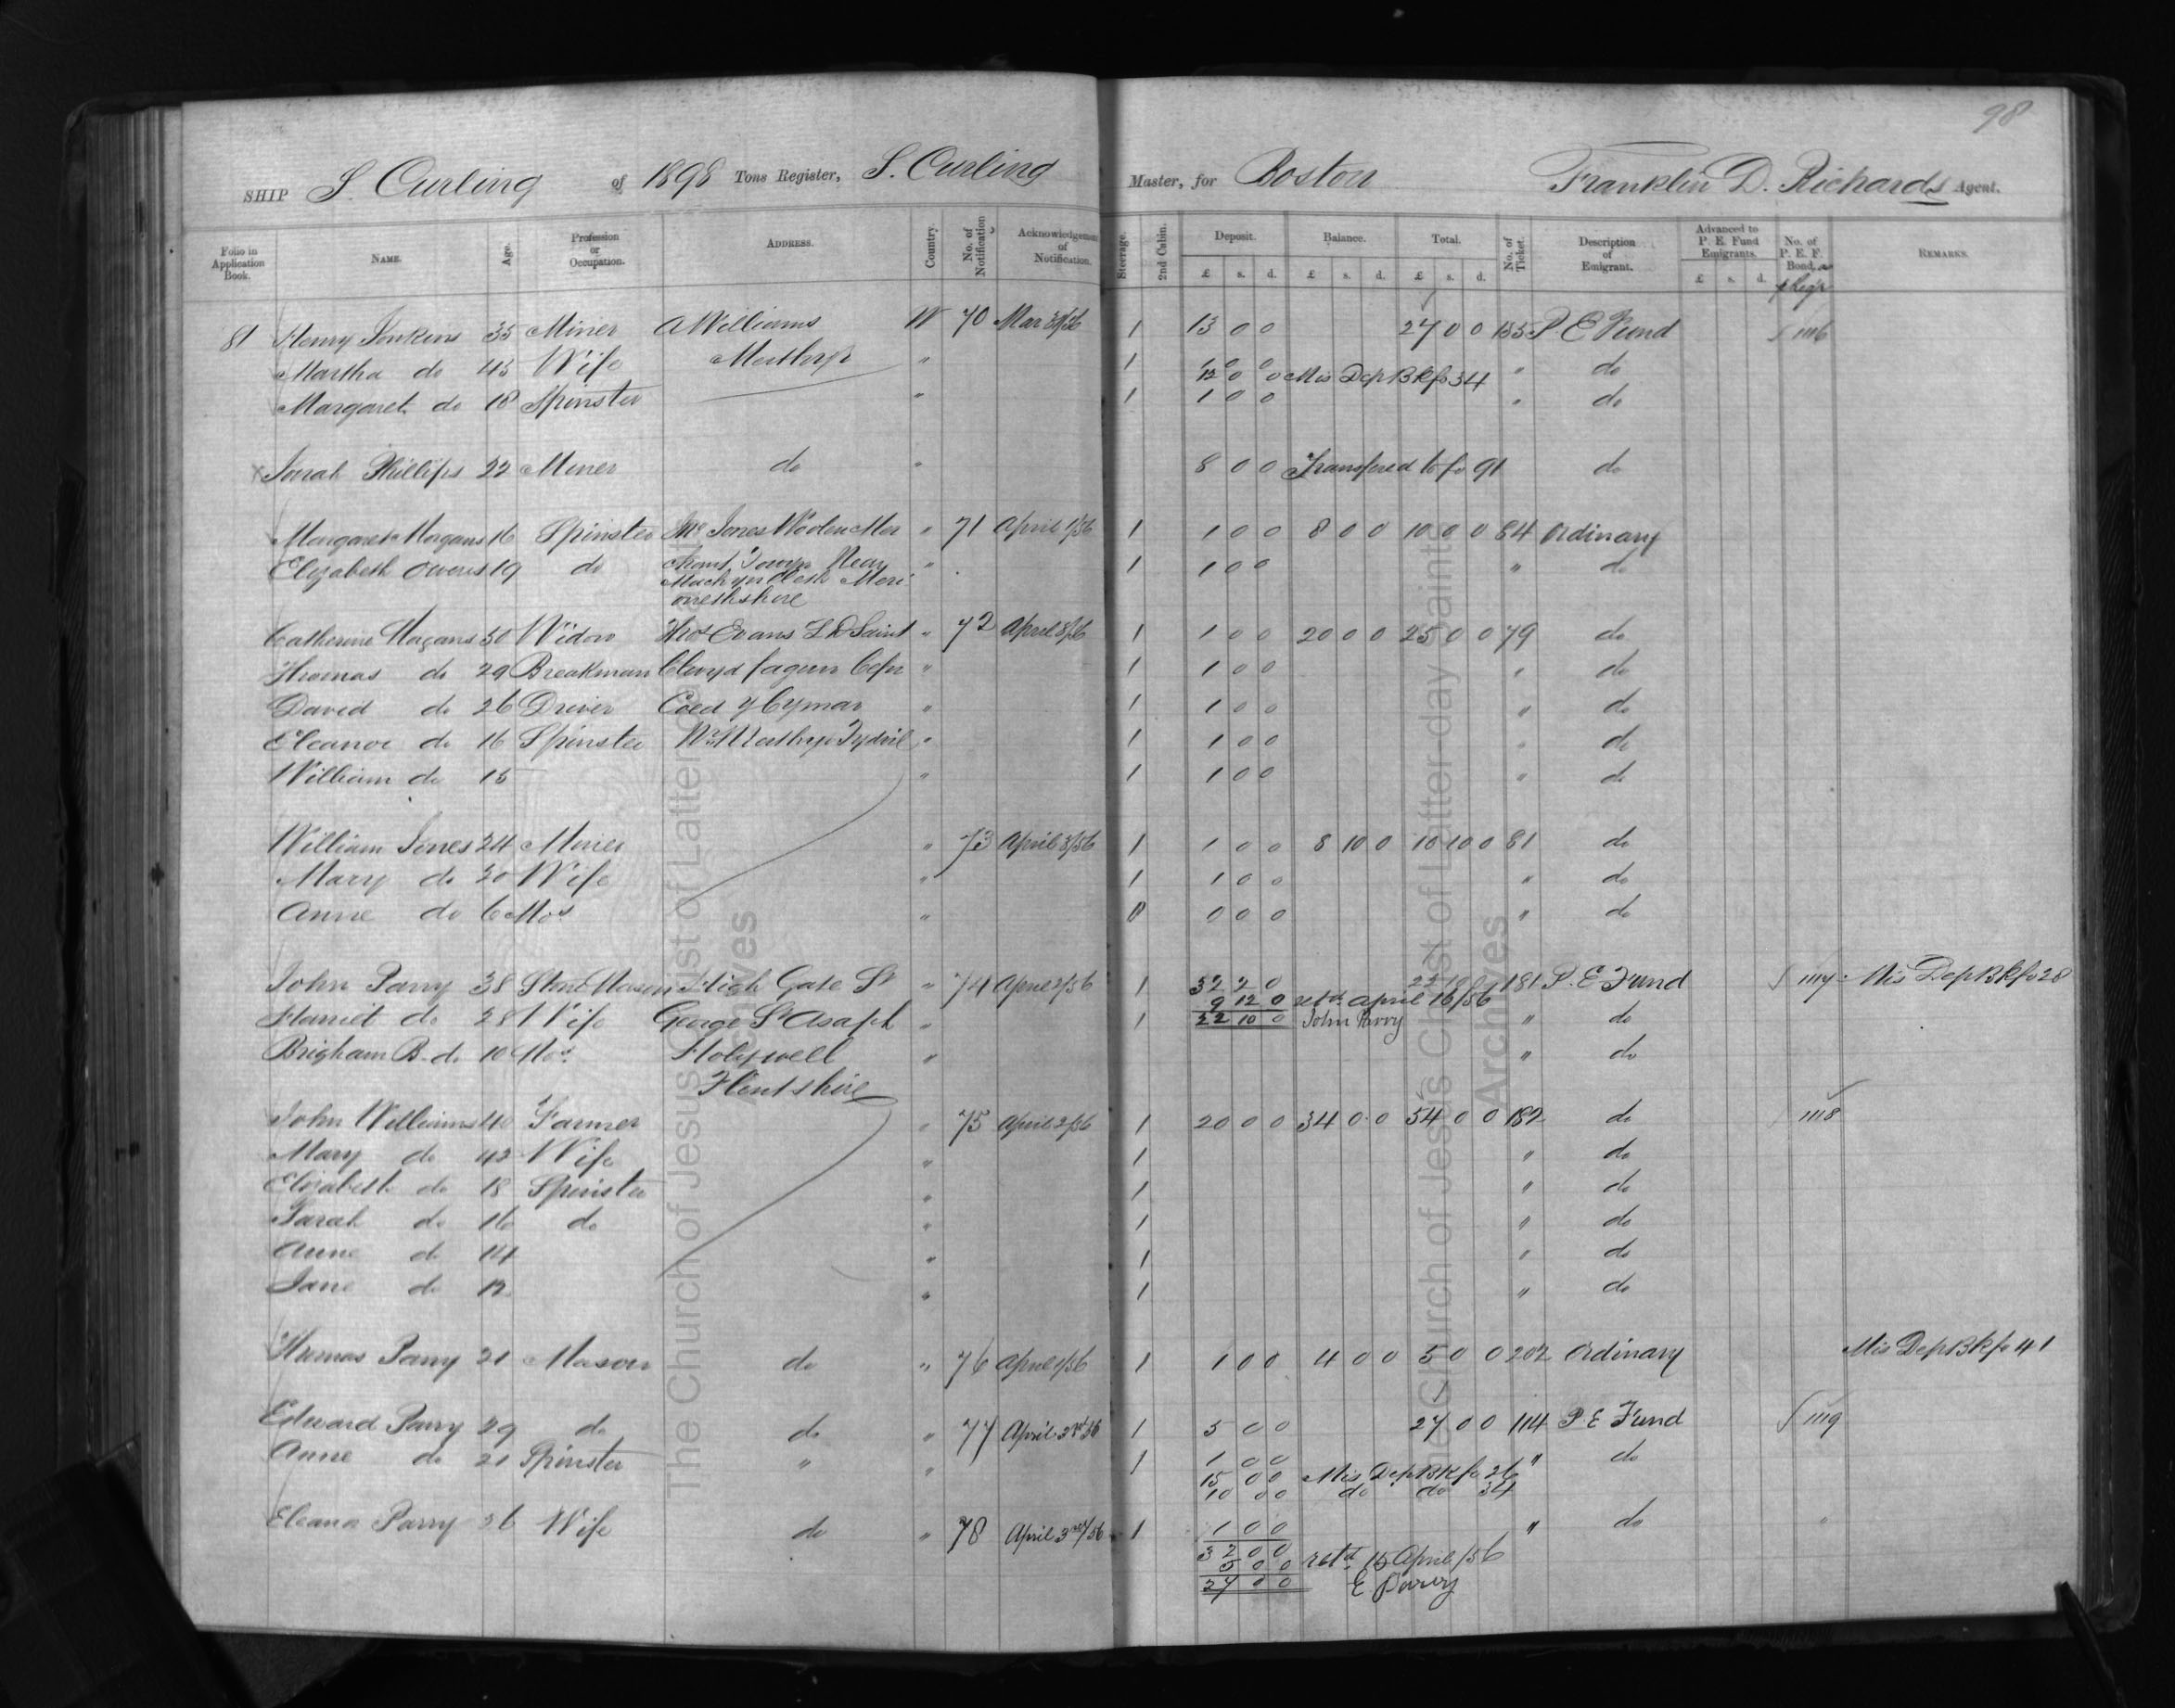 98
SHIP S. Curling of 1898 Tons Register, S. Curling Master, for Boston Franklin D. Richards Agent.
Folio in Application Book. NAME. Age. Profession or Occupation. ADDRESS. Country. No. of Notification Acknowledgement of Notification. Steerage. 2nd Cabin. Deposit. £ s. d. Balance. £ s. d. Total. £ s. d. No. of Ticket. Description of Emigrant. Advanced to P. E. Fund Emigrants. £ s. d. No. of P. E. F. Bond, REMARKS.
81 Henry Jenkins 35 Miner A Williams W 70 Mar 1 13 0 0 27 0 0 135 P. E Fund 1116
Martha do 45 Wife Merthyr " 1 0 0 " do
12 0 0 Mis Dep Bk fo 34
Margaret do 18 Spinster " 1 1 0 0 " do
Phillips 22 Miner do " 8 0 0 Transfered to fo 91 do
Margaret Morgans 16 Spinster Mr Jones Woolen Mer " 71 April 1/56 1 1 0 0 8 0 0 10 0 0 84 Ordinary
Elizabeth Owens 19 do chant, Towyn Near " 1 1 0 0 " do
Machynlleth Meri
onethshire
Catherine Hagans 50 Widow Thos Evans L D Saint " 72 April 3/56 1 1 0 0 20 0 0 25 0 0 79 do
Thomas do 29 Breakman Clwyd fagwr Cefn " 1 1 0 0 " do
David do 26 Driver Coed y Cymar " 1 1 0 0 " do
Eleanor do 16 Spinster Nr Merthyr Tydvil " 1 1 0 0 " do
William do 15 " 1 1 0 0 " do
William Jones 24 Miner " 73 April 3/56 1 1 0 0 8 10 0 10 10 0 81 do
Mary do 20 Wife " 1 1 0 0 " do
Anne do 6 Mos " 0 0 0 0 " do
John Parry 38 Stone Mason High Gate St " 74 April 2/56 1 32 2 0 22 10 0 181 P. E Fund 1117 Mis Dep Bk fo 28
9 12 0 retd April 16/56
Harriet do 28 Wife George St Asaph " 1 22 10 0 John Parry " do
Brigham B. do 10 Mos Holywell " " do
Flintshire
John Williams 40 Farmer " 75 April 2/56 1 20 0 0 34 0 0 54 0 0 182 do 1118
Mary do 42 Wife " 1 " do
Elizabeth do 18 Spinster " 1 " do
Sarah do 16 do " 1 " do
Anne do 14 " 1 " do
Jane do 12 " 1 " do
Thomas Parry 21 Mason do " 76 April 1/56 1 1 0 0 4 0 0 5 0 0 202 Ordinary Mis Dep Bk fo 41
Edward Parry 29 do do " 77 April 2nd 56 1 5 0 0 27 0 0 114 P. E Fund 1119
Anne do 21 Spinster " " 1 1 0 0 " do
15 0 0 Mis Dep Bk fo 26
10 0 0 do do 34
Eleana Parry 26 Wife do " 78 April 3rd/56 1 1 0 0 " do "
32 0 0
5 0 0 retd 15 April/56
27 0 0 E Parry
The Church of Jesus Christ of Latter-day Saints
Archives
The Church of Jesus Christ of Latter-day Saints
Archives